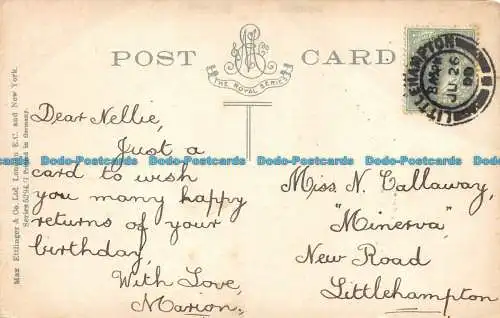 POST CARD
THE ROYAL SERIES
LITTLEHAMPTON
JU 26
Max Ettlinger & Co. Ltd. London E.C. and New York.
Printed in Germany.
Dear Nellie,
Just a
card to wish
you many happy
returns of your
birthday,
With Love,
Marion.
Miss N. Callaway,
"Minerva"
New Road
Littlehampton
Dodo-Postcards Dodo-Postcards Dodo-Postcards Dodo-Postcards Dodo-Postcards